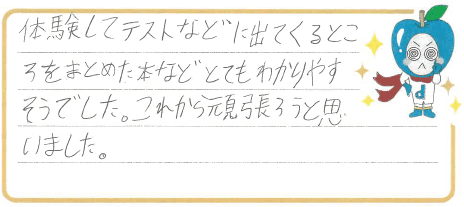 体験してテストなどに出てくるとこ
ろをまとめた本などとてもわかりやす
そうでした。これから頑張ろうと思
いました。
d